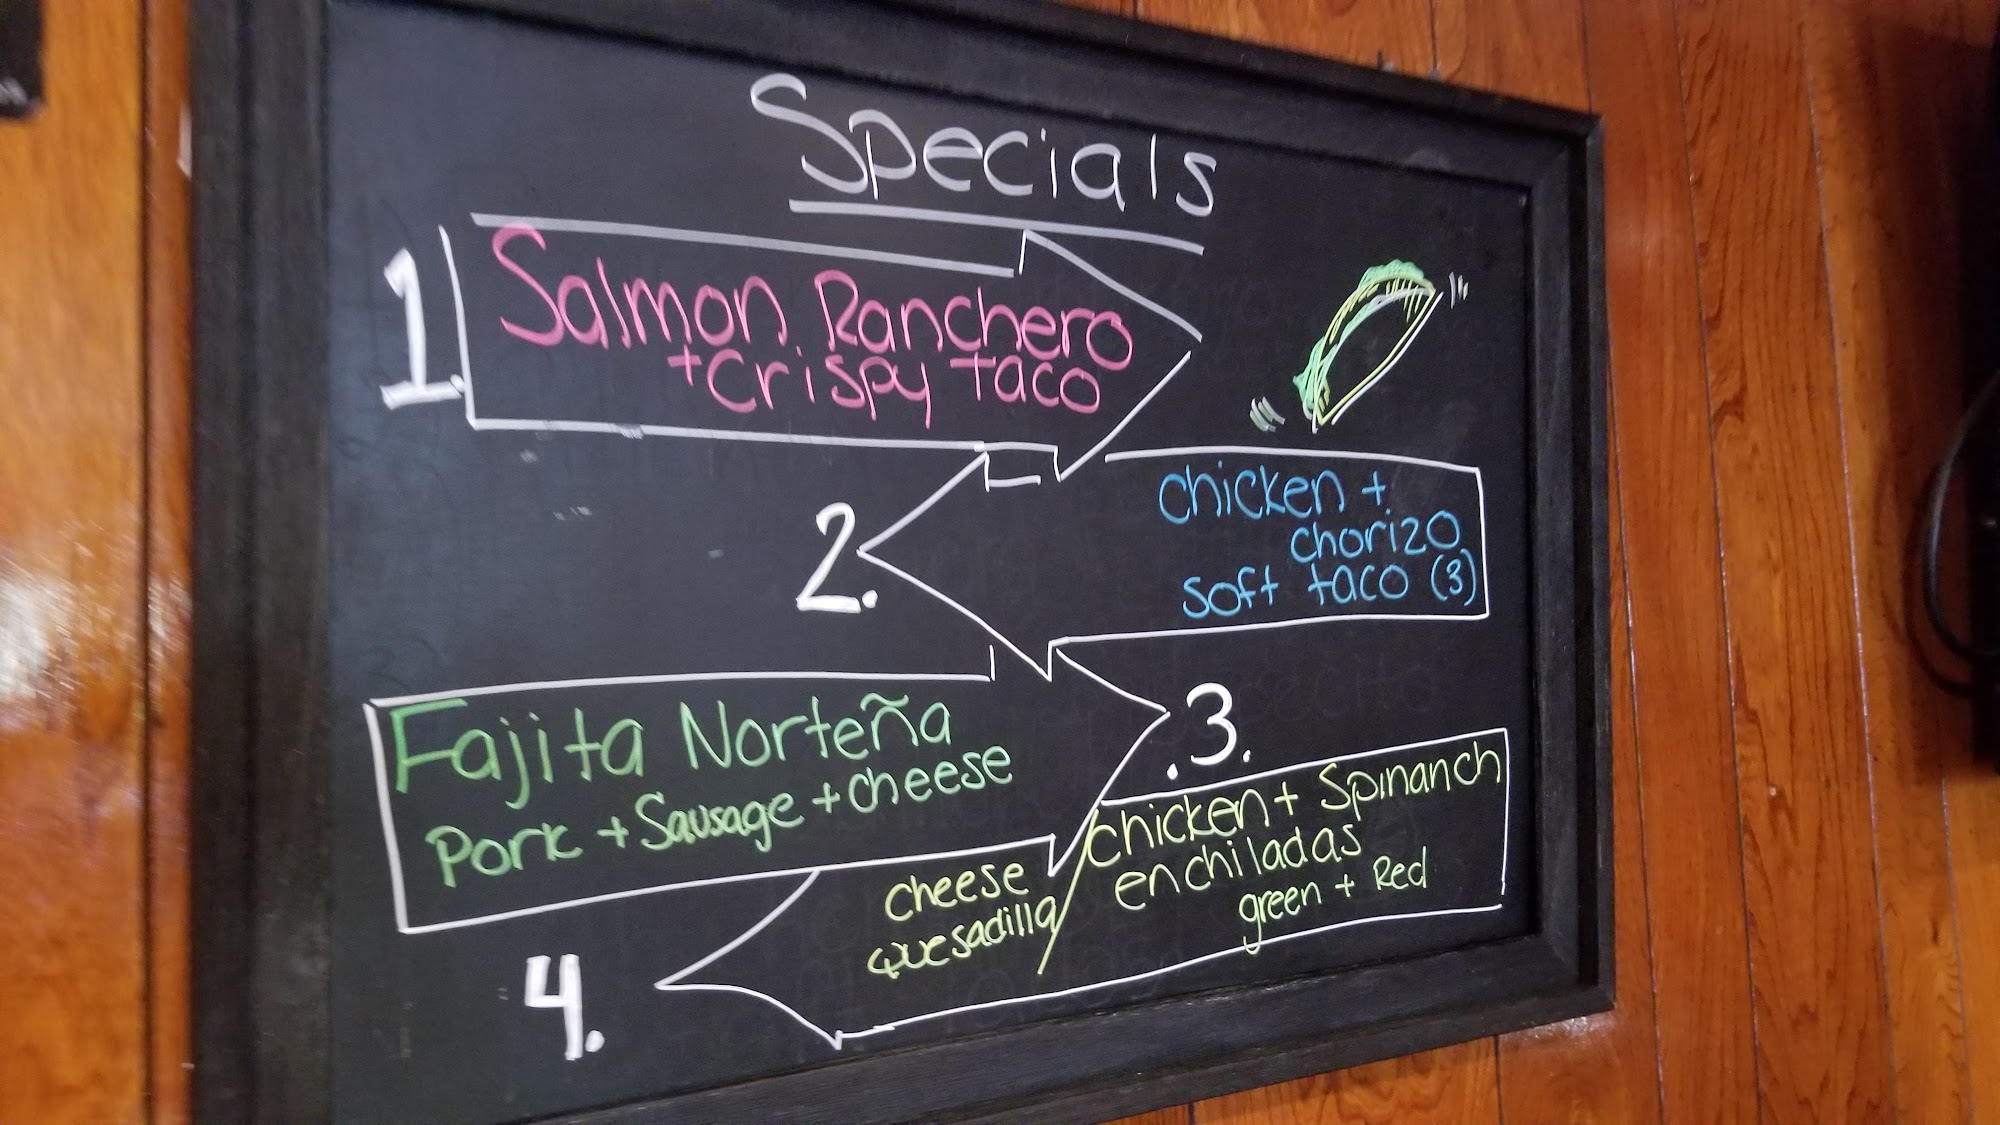 Specials
1. Salmon Ranchero
+ Crispy taco
2. chicken +
chorizo
soft taco (3)
.3.
Fajita Norteña
Pork + Sausage + cheese
4. cheese
quesadilla /
chicken + Spinanch
enchiladas
green + Red